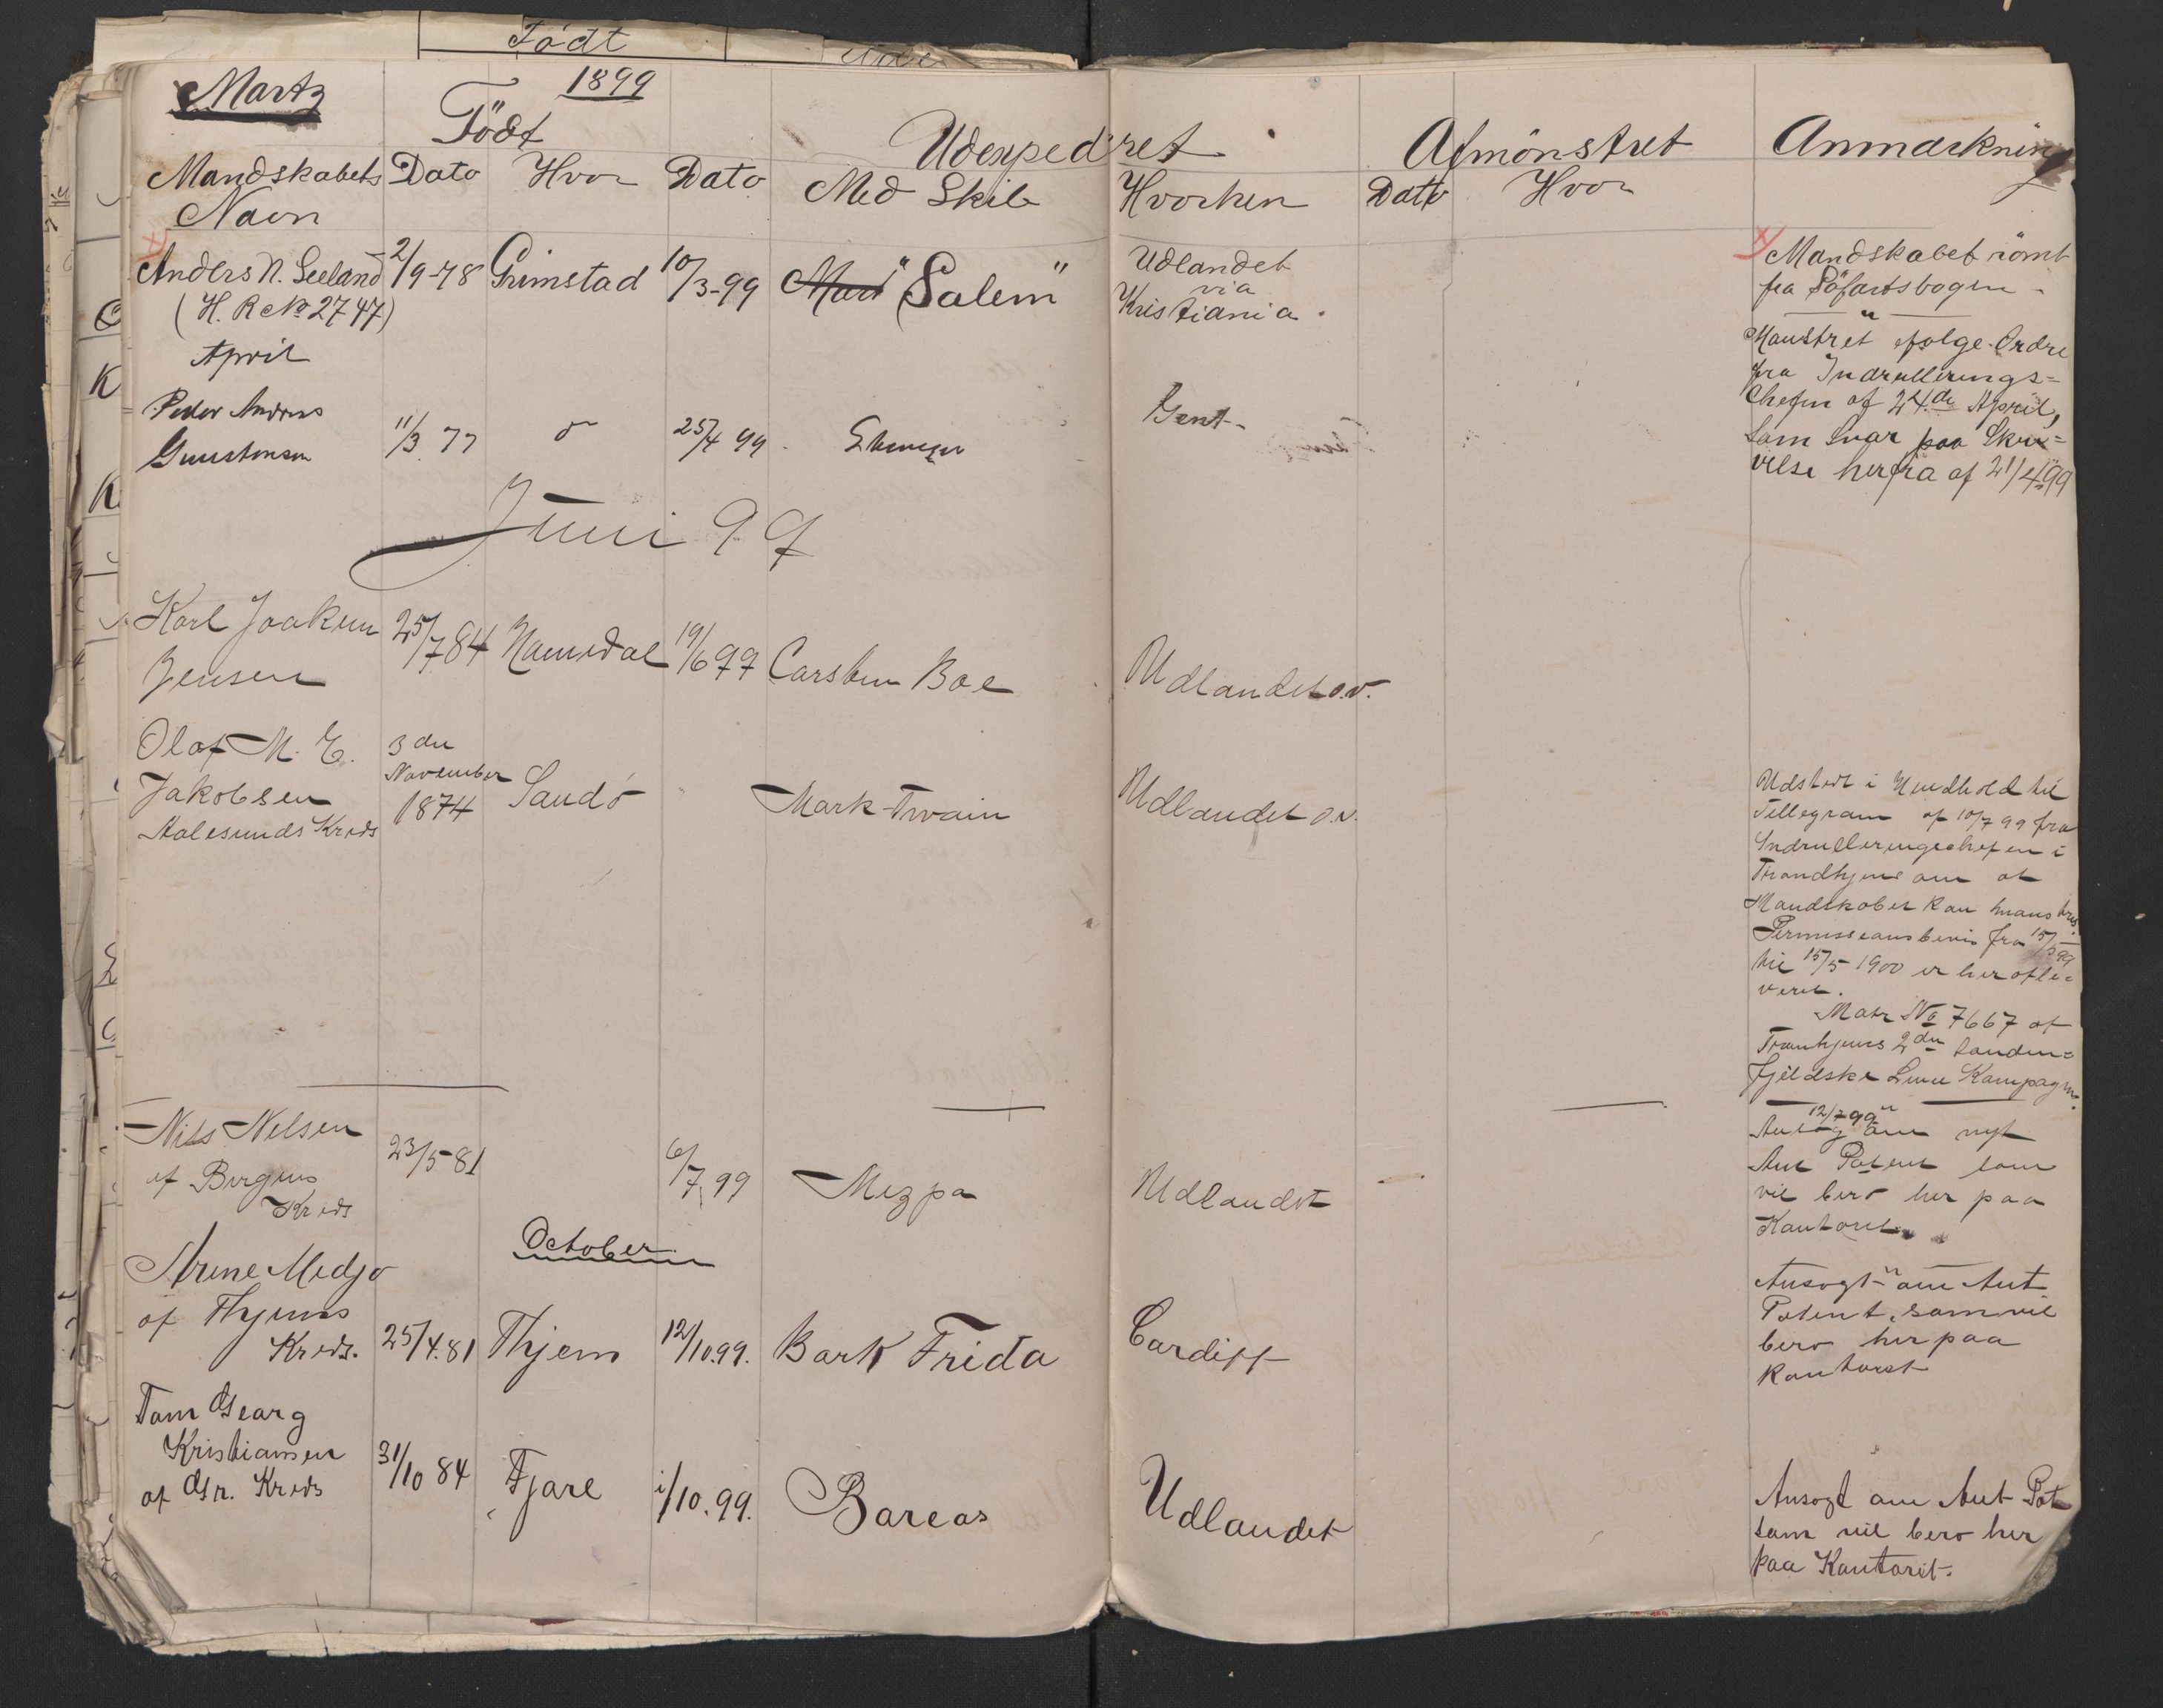 Født
Martz
1899
Födt
Udexpedret
Afmönstret
Anmærkning
Mandskabets Navn
Dato
Hvor
Dato
Med Skib
Hvorhen
Dato
Hvor
Anders N. Seeland
(H. R No 2747)
2/9-78
Grimstad
10/3-99
"Salem"
Udlandet
via
Kristiania.
Mandskabet römt
fra Söfartsbogen.
April
Peder Andreas
11/3 77
25/4 99
Ebenezer
Gent
Mönstret efølge Ordre
fra Indrullerings=
Chefen af 24de April,
som Svar paa Skri=
velse herfra af 21/4 99
Juni 99
Karl Joakim
Jensen
25/7 84
Namsdal
19/6 99
Carsten Boe
Udlandet o.v.
Olaf M. E.
Jakobsen
Aalesunds Kreds
3die
November
1874
Sandö
"
Mark Twain
Udlandet o.v.
Udstedt i Henhold til
Tellegram af 10/7 99 fra
Indrulleringschefen i
Trondhjem om at
Mandskabet kan mønstres.
Permissionsbevis fra 15/5 99
til 15/5 1900 er her afle=
veret.
Matr No 7667 af
Tronhjems 2den
fjeldske Linie Kompagni.
Nils Nelsen
af Bergens
Kreds
23/5 81
6/7 99
Mizpa
Udlandet
12/7 99
Ansøg om nyt
Ant Patent som
vil bero her paa
Kontoret.
October
Arne Medjo
af Thjems
Kreds.
25/4.81
Thjem
12/10.99.
Bark Frida
Cardiff
Ansogt om Ant
Patent, som vil
bero her paa
Kontoret
Tom Georg
Kristiansen
af Gr. Kreds
31/10 84
Fjære
i/10.99.
Boreas
Udlandet
Ansogt om Ant Pat
som vil bero her
paa Kontoret.